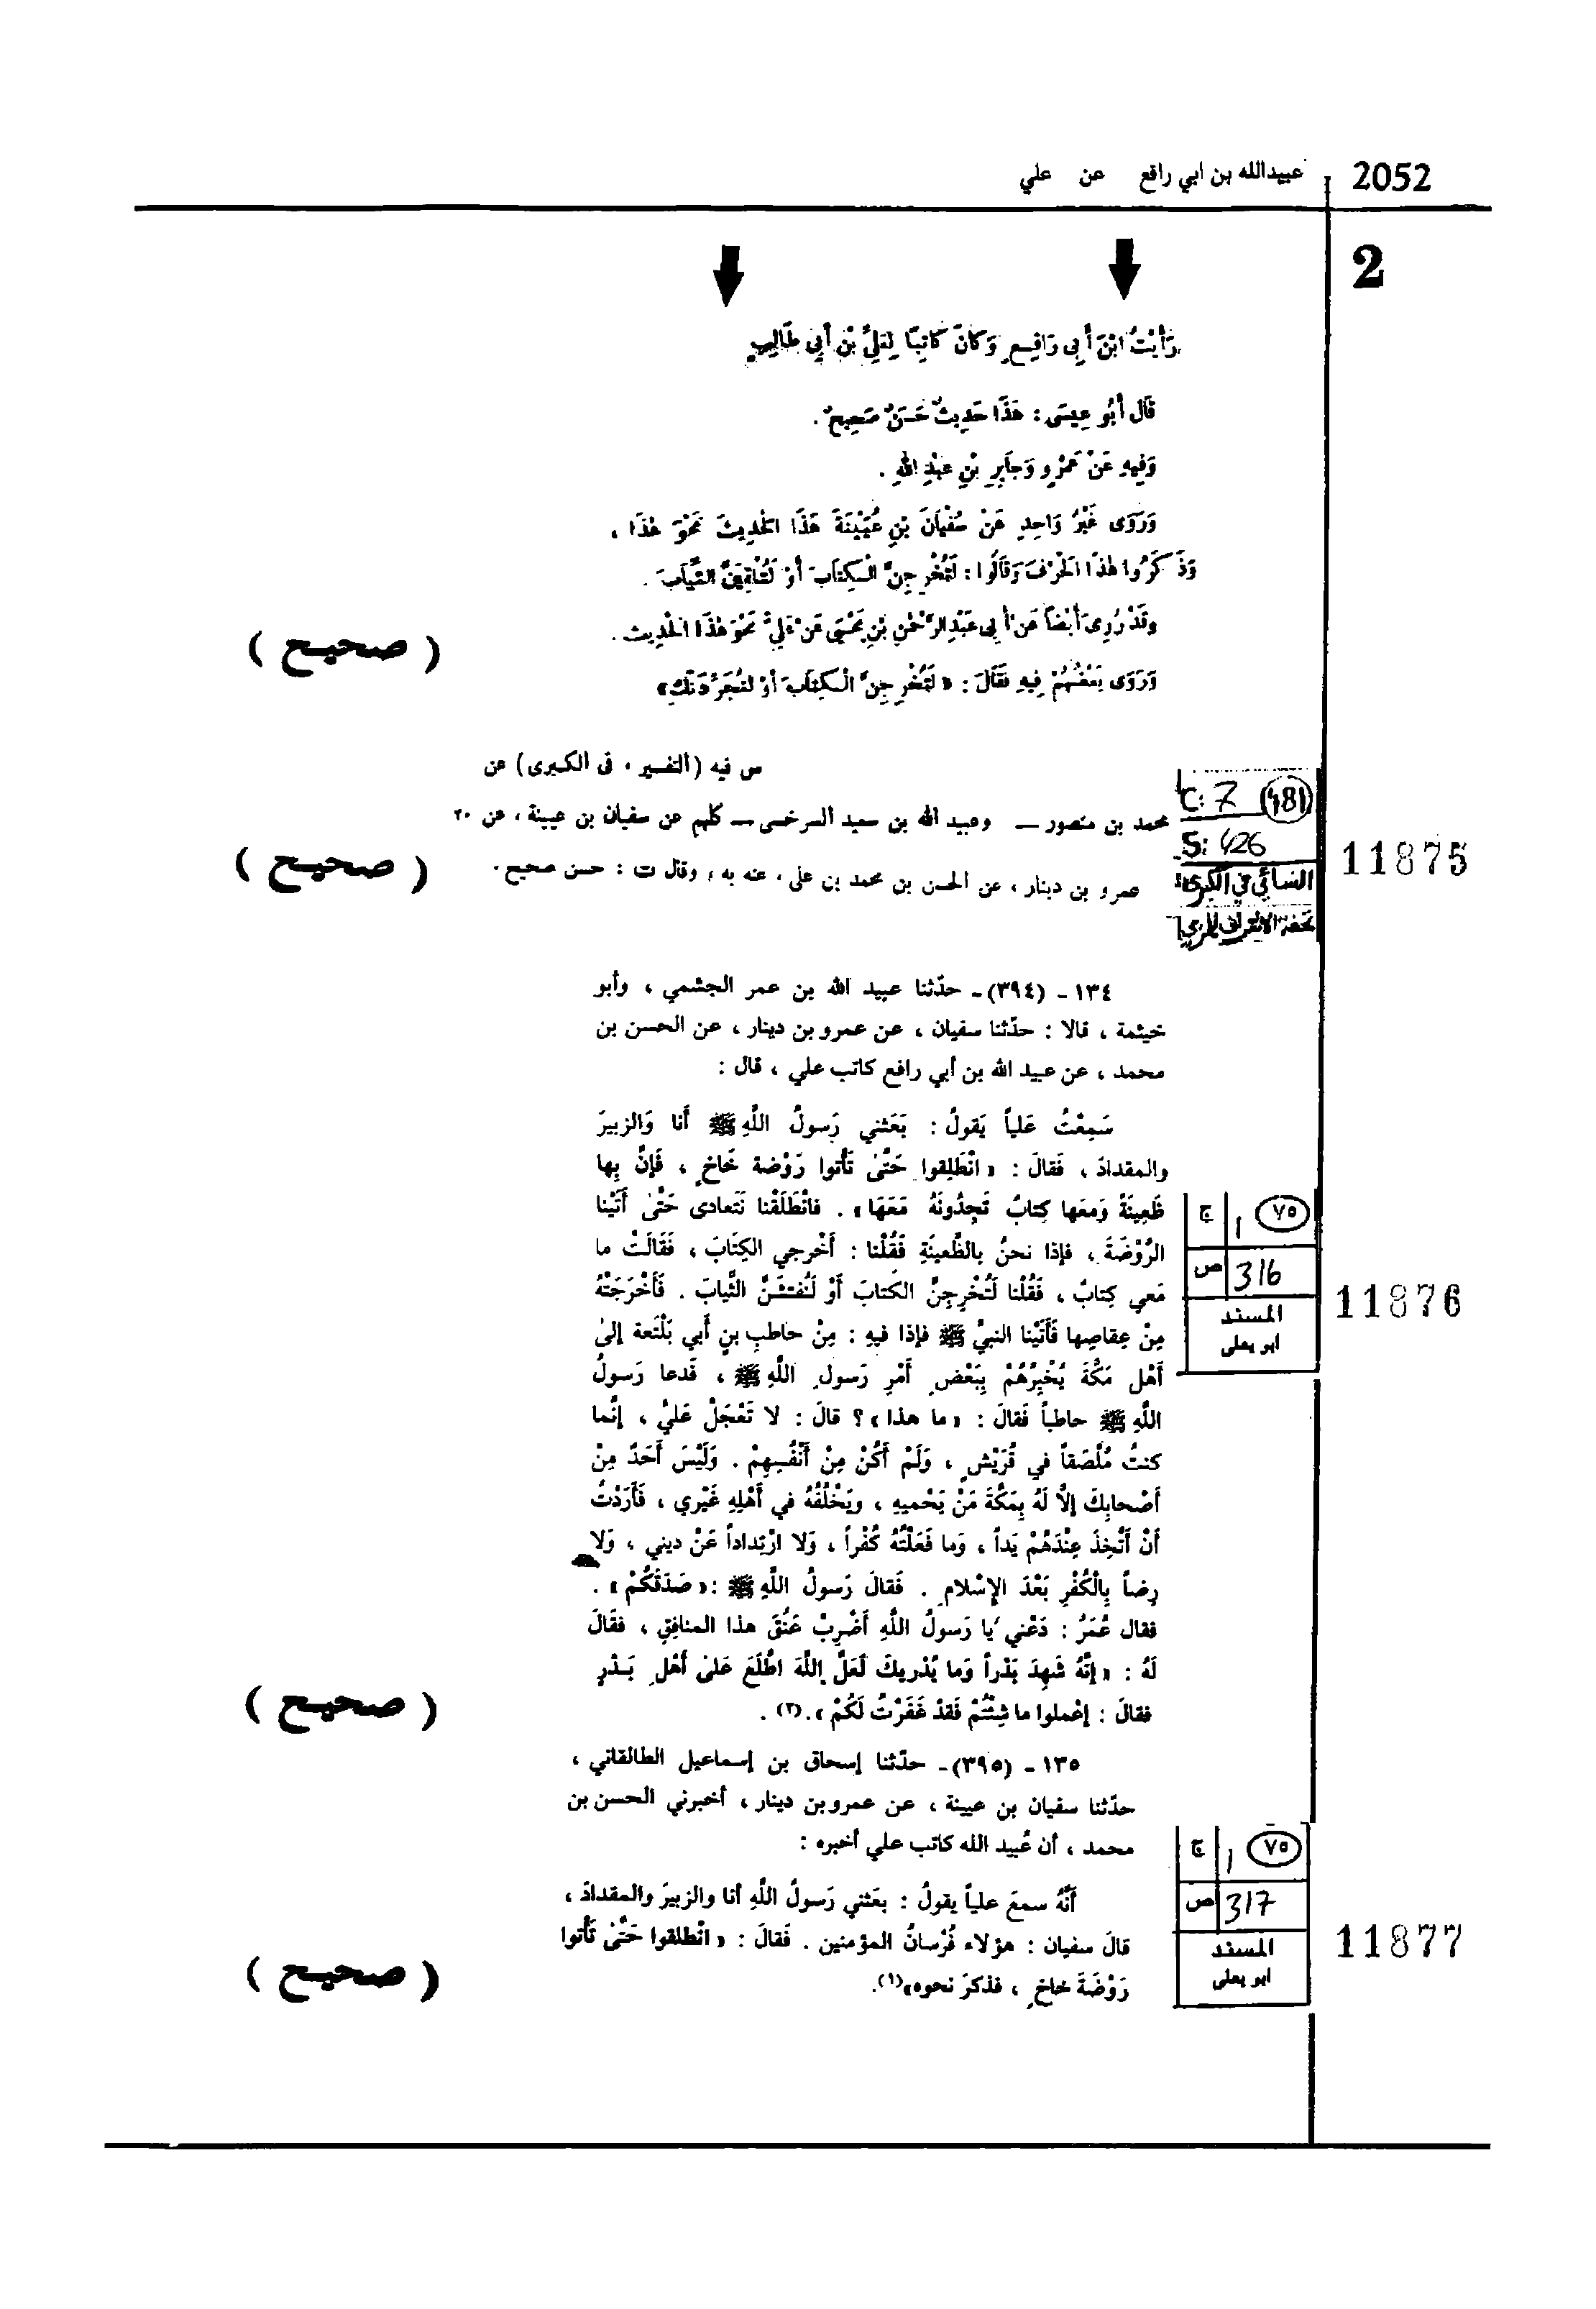 2052
عبيدالله بن ابي رافع عن علي
2
رَأَيْتُ ابْنَ أَبِي رَافِعٍ وَكَانَ كَاتِبًا لِعَلِيِّ بْنِ أَبِي طَالِبٍ
قَالَ أَبُو عِيسَى : هَذَا حَدِيثٌ حَسَنٌ صَحِيحٌ .
وَفِيهِ عَنْ عُمَرَ وَجَابِرِ بْنِ عَبْدِ اللهِ .
وَرَوَى غَيْرُ وَاحِدٍ عَنْ سُفْيَانَ بْنِ عُيَيْنَةَ هَذَا الْحَدِيثَ نَحْوَ هَذَا ،
وَذَكَرُوا هٰذَا الْحَرْفَ وَقَالُوا : لَتُخْرِجِنَّ الْكِتَابَ أَوْ لَتُلْقِيَنَّ الثِّيَابَ .
وقَدْ رُوِىَ أَيْضًا عَنْ أَبِى عَبْدِ الرَّحْمٰنِ بْنِ يَحْيَى عَنْ عَلِيٍّ نَحْوَ هٰذَا الْحَدِيثِ .
( صحيح )
وَرَوَى بَعْضُهُمْ فِيهِ فَقَالَ : « لَتُخْرِجِنَّ الْكِتَابَ أَوْ لَنُجَرِّدَنَّكِ»
س فيه (التفسير ، فى الكبرى) عن
C: 7 (48)
محمد بن منصور — وعبيد الله بن سعيد السرخسى — كلهم عن سفيان بن عيينة ، عن ٢٠
S: 426
11875
عمرو بن دينار ، عن الحسن بن محمد بن على ، عنه به ، وقال ت : حسن صحيح .
( صحيح )
النسائي في الكبرى
تحفة الاشراف للمزي
١٣٤ - (٣٩٤)- حدّثنا عبيد الله بن عمر الجشمي ، وأبو
خيثمة ، قالا : حدّثنا سفيان ، عن عمرو بن دينار ، عن الحسن بن
محمد ، عن عبيد الله بن أبي رافع كاتب علي ، قال :
سَمِعْتُ عَلياً يَقولُ : بَعَثني رَسولُ اللَّهِ ﷺ أَنا وَالزبيرَ
والمقدادَ ، فَقالَ : « انْطَلِقوا حَتَّىٰ تَأْتوا رَوْضة خَاخٍ ، فَإِنَّ بِها
ظَعِينَةً وَمعَها كِتابٌ تَجِدُونَهُ مَعَهَا» . فانْطَلَقْنا نَتَعادى حَتَّىٰ أَتَيْنا
الرَّوْضَةَ ، فإذا نحنُ بالظَّعينَةِ فَقُلْنا : أَخْرجي الكِتَابَ ، فَقَالَتْ ما
مَعي كِتابٌ ، فَقُلْنا لَتُخْرِجِنَّ الكتَابَ أَوْ لَنُفتشَنَّ الثِّيابَ . فَأَخْرَجَتْهُ
مِنْ عِقاصِها فَأَتَيْنا النبيَّ ﷺ فإذا فيهِ : مِنْ حاطبِ بنِ أَبي بَلْتَعة إلىٰ
أَهْلِ مَكَّةَ يُخْبِرُهُمْ بِبَعْضِ أَمْرِ رَسولِ اللَّهِ ﷺ ، فَدعا رَسولُ
اللَّهِ ﷺ حاطباً فَقالَ : « ما هذا» ؟ قالَ : لا تَعْجَلْ عَليَّ ، إنَّما
كنتُ مُلْصَقاً في قُرَيْشٍ ، وَلَمْ أَكُنْ مِنْ أَنْفُسِهِمْ . وَلَيْسَ أَحَدٌ مِنْ
أَصْحابِكَ إلاَّ لَهُ بِمَكَّةَ مَنْ يَحْميهِ ، ويَخْلُفُهُ في أَهْلِهِ غَيْري ، فَأَرَدْتُ
أَنْ أَتَّخِذَ عِنْدَهُمْ يَداً ، وَما فَعَلْتُهُ كُفْراً ، وَلا ارْتِداداً عَنْ ديني ، وَلا
رِضاً بِالْكُفْرِ بَعْدَ الإِسْلامِ . فَقالَ رَسولُ اللَّهِ ﷺ :« صَدَقَكُمْ» .
فقال عُمَرُ : دَعْني يا رَسولُ اللَّهِ أَضْرِبْ عُنُقَ هذا المنافِقِ ، فقَالَ
لَهُ : « إنَّهُ شَهِدَ بَدْراً وَما يُدْريكَ لَعَلَّ اللَّهَ اطَّلَعَ عَلىٰ أَهْلِ بَدْرٍ
فقالَ : إعْملوا ما شِئْتُمْ فَقدْ غَفَرْتُ لَكُمْ» .(٣) .
( صحيح )
٧٥ ١ ج
316 ص
المسند
ابو يعلى
11876
١٣٥ - (٣٩٥)- حدّثنا إسحاق بن إسماعيل الطالقاني ،
حدّثنا سفيان بن عيينة ، عن عمرو بن دينار ، أخبرني الحسن بن
محمد ، أن عُبيد الله كاتب علي أخبره :
أَنَّهُ سمعَ علياً يقولُ : بعَثني رَسولُ اللَّهِ أنا والزبيرَ والمقدادَ ،
قالَ سفيان : هؤلاء فُرْسانُ المؤمنين . فَقالَ : « انْطلقوا حَتَّىٰ تَأْتوا
رَوْضَةَ خاخٍ ، فذكرَ نحوه»(١).
( صحيح )
٧٥ ١ ج
317 ص
المسند
ابو يعلى
11877